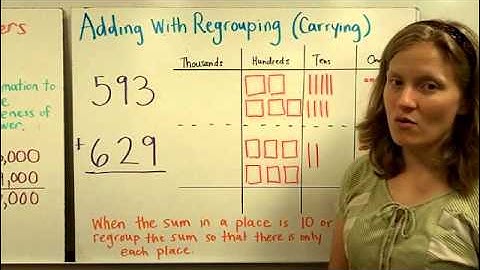 ers
Adding With Regrouping (Carrying)
Thousands Hundreds Tens On
mation to
e
eness of
wer.
593
+629
0,000
1,000
,000
When the sum in a place is 10 or
regroup the sum so that there is only
each place.